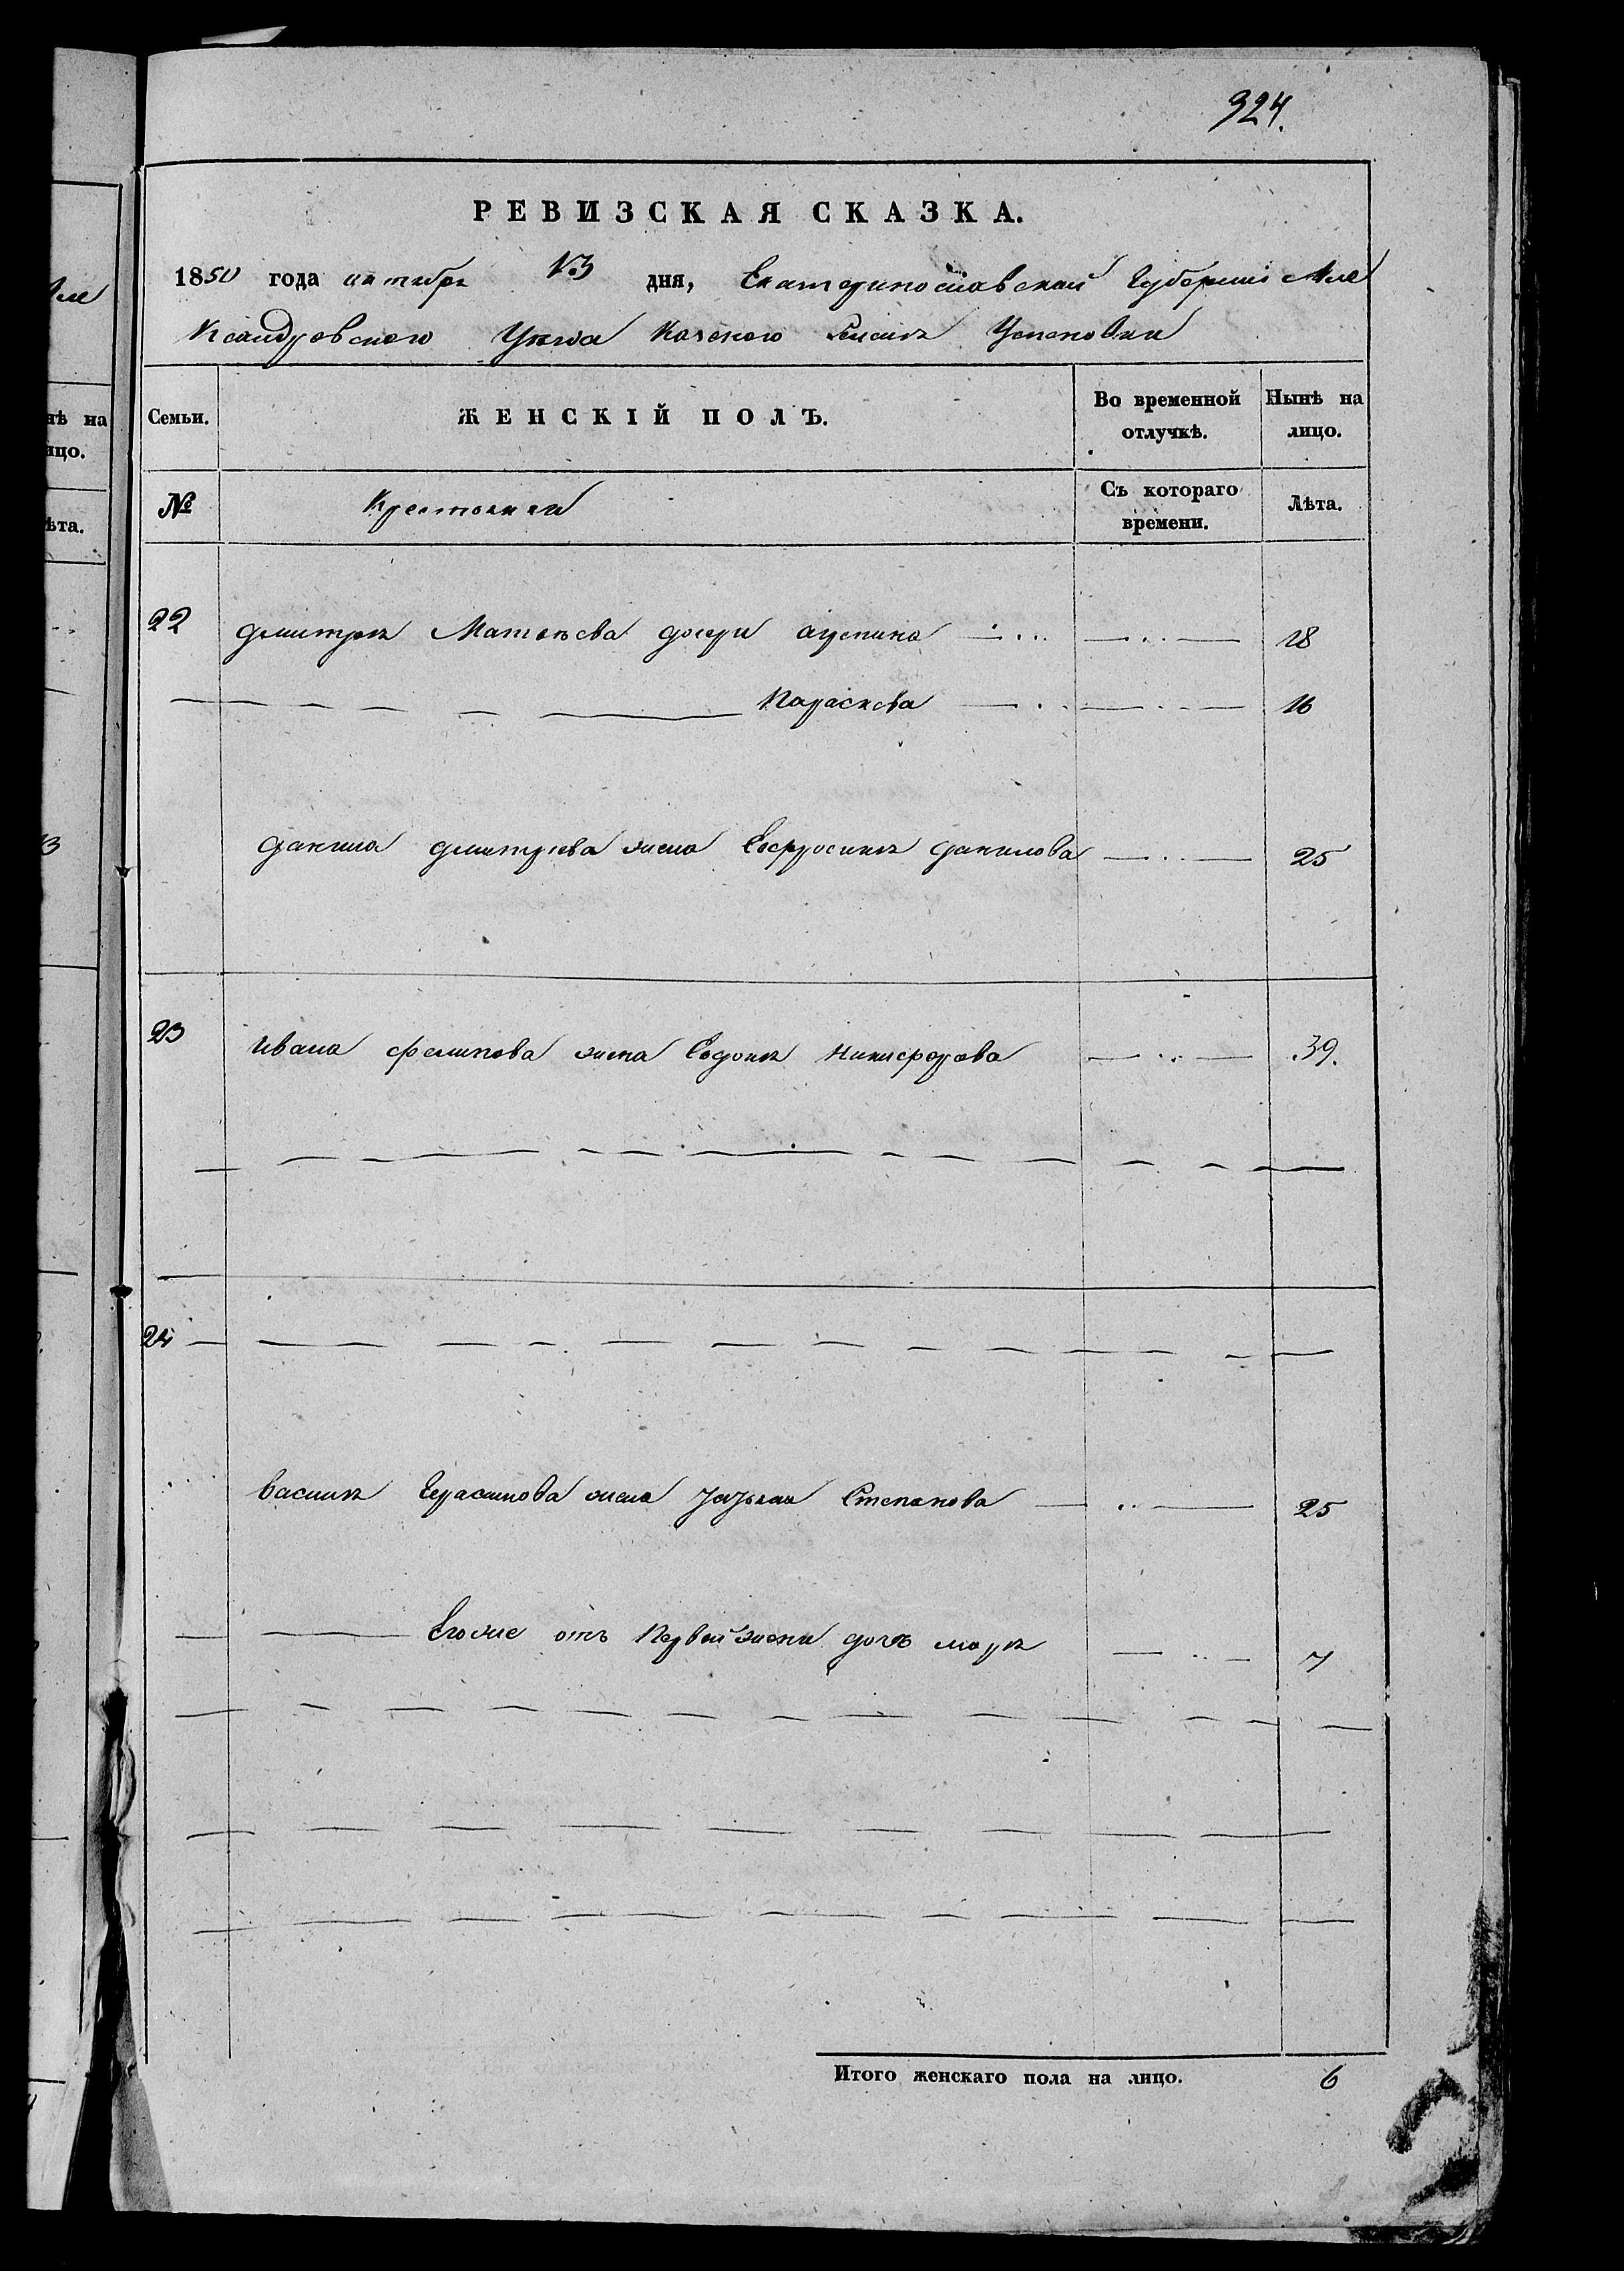 924.
РЕВИЗСКАЯ СКАЗКА.
1850 года октября 13 дня, Екатеринославской Губернiи Але
ксандровского Уезда Селенiя Успеновки
Семьи. ЖЕНСКIЙ ПОЛЪ. Во временной отлучкѣ. Нынѣ на лицо.
№ Крестьянки Съ котораго времени. Лѣта.
22 Дмитрiя Матвѣева дочери Агрепина 18
Параскева 16
Данила Дмитрiева жена Евфросинiя Данилова 25
23 Ивана Филипова жена Евдокiя Никифорова 39.
24
Василiя Герасимова жена Степанова 25
Его же отъ первой жены дочь Марiя 7
Итого женскаго пола на лицо. 6